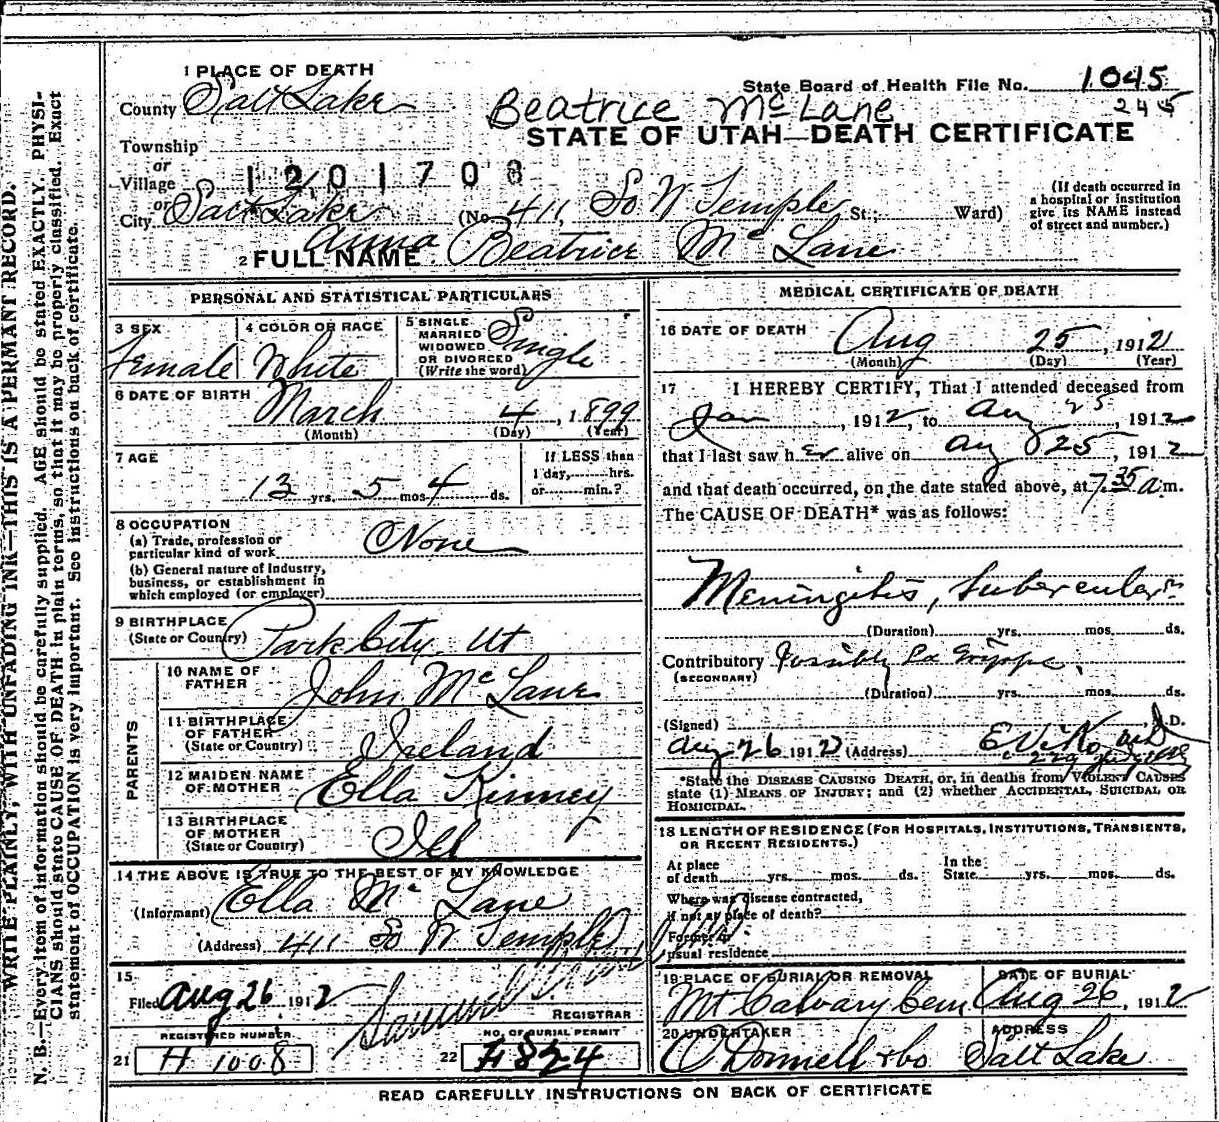 WRITE PLAINLY, WITH UNFADING INK—THIS IS A PERMANT RECORD.
N. B.—Every item of information should be carefully supplied. AGE should be stated EXACTLY. PHYSI-
CIANS should state CAUSE OF DEATH in plain terms, so that it may be properly classified. Exact
statement of OCCUPATION is very important. See instructions on back of certificate.
1 PLACE OF DEATH
County Salt Lake
State Board of Health File No. 1045
245
Beatrice McLane
STATE OF UTAH—DEATH CERTIFICATE
Township
or
Village
1201708
or
City Salt Lake (No. 411, So W Temple St.; Ward)
(If death occurred in
a hospital or institution
give its NAME instead
of street and number.)
2 FULL NAME Anna Beatrice McLane
PERSONAL AND STATISTICAL PARTICULARS
3 SEX
Female
4 COLOR OR RACE
White
5 SINGLE
MARRIED
WIDOWED
OR DIVORCED
(Write the word)
Single
6 DATE OF BIRTH
March 4, 1899
(Month) (Day) (Year)
7 AGE
13 yrs. 5 mos. 4 ds.
If LESS than
1 day, hrs.
or min.?
8 OCCUPATION
(a) Trade, profession or
particular kind of work None
(b) General nature of Industry,
business, or establishment in
which employed (or employer)
9 BIRTHPLACE
(State or Country) Park City, Ut
PARENTS
10 NAME OF
FATHER John McLane
11 BIRTHPLACE
OF FATHER
(State or Country) Ireland
12 MAIDEN NAME
OF MOTHER Ella Kinney
13 BIRTHPLACE
OF MOTHER
(State or Country) Ill
14 THE ABOVE IS TRUE TO THE BEST OF MY KNOWLEDGE
(Informant) Ella McLane
(Address) 411 So W Temple
15
Filed Aug 26 1912
REGISTRAR
REGISTERED NUMBER.
21 H 1008
NO. OF BURIAL PERMIT
22 H 824
MEDICAL CERTIFICATE OF DEATH
16 DATE OF DEATH
Aug 25, 1912
(Month) (Day) (Year)
17 I HEREBY CERTIFY, That I attended deceased from
Jan, 1912, to Aug 25, 1912
that I last saw her alive on Aug 25, 1912
and that death occurred, on the date stated above, at 7.35 a m.
The CAUSE OF DEATH* was as follows:
Meningitis, Tubercular
(Duration) yrs. mos. ds.
Contributory Possibly La Grippe.
(SECONDARY)
(Duration) yrs. mos. ds.
(Signed) M.D.
Aug 26 1912 (Address)
*State the DISEASE CAUSING DEATH, or, in deaths from VIOLENT CAUSES
state (1) MEANS OF INJURY; and (2) whether ACCIDENTAL, SUICIDAL OR
HOMICIDAL.
18 LENGTH OF RESIDENCE (FOR HOSPITALS, INSTITUTIONS, TRANSIENTS,
OR RECENT RESIDENTS.)
At place
of death yrs. mos. ds.
In the
State yrs. mos. ds.
Where was disease contracted,
if not at place of death?
Former or
usual residence
19 PLACE OF BURIAL OR REMOVAL
Mt Calvary Cem
DATE OF BURIAL
Aug 26, 1912
20 UNDERTAKER
O'Donnell & Co
ADDRESS
Salt Lake
READ CAREFULLY INSTRUCTIONS ON BACK OF CERTIFICATE